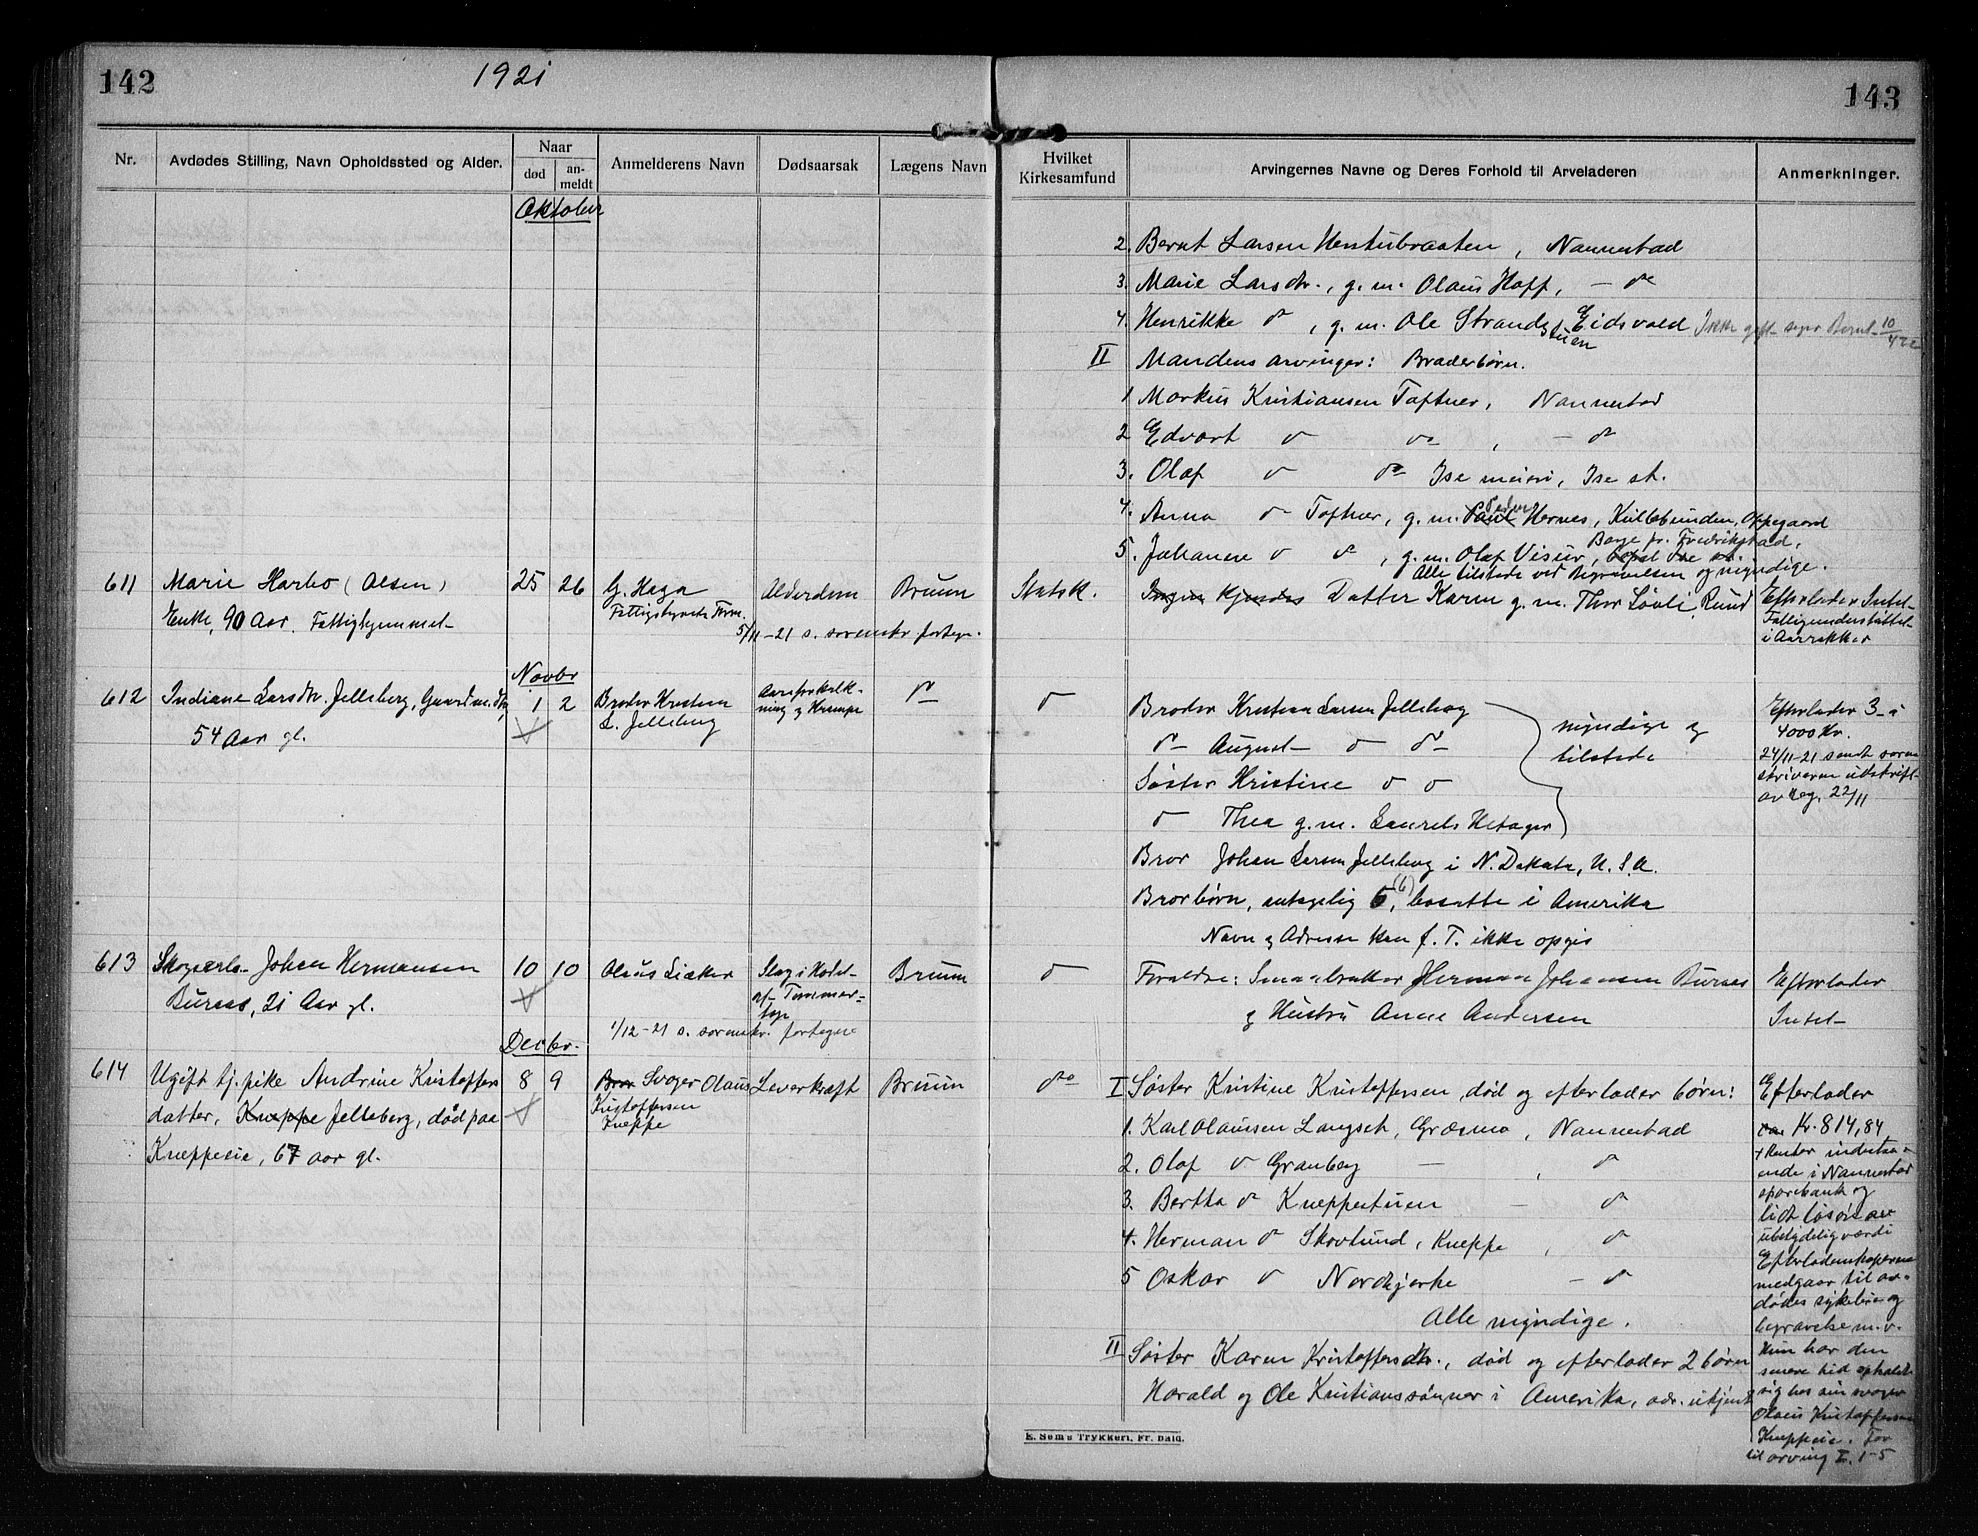 142
1921
143
Nr.
Avdødes Stilling, Navn Opholdssted og Alder.
Naar
død
an-
meldt
Anmelderens Navn
Dødsaarsak
Lægens Navn
Hvilket
Kirkesamfund
Arvingernes Navne og Deres Forhold til Arveladeren
Anmerkninger.
Oktober
2. Bernt Larsen Henstubraaten, Nannestad
3. Marie Larsdtr., g. m. Olaus Hoff, — do
4. Henrikke do, g. m. Ole Strandstuen Eidsvold Ikke gift 10/4 22
II Mandens arvinger: Broderbørn.
1 Markus Kristiansen Toftner, Nannestad
2 Edvart do do, — do
3. Olaf do do Ise meieri, Ise st.
4. Anna do Toftner, g. m. Paul Peder Hernes, Kullebunden, Oppegaard
5. Johanne do do, g. m. Olaf Visur, Borge pr. Fredrikstad,
Alle tilstede ved Begravelsen og myndige.
611 Marie Harbo (Olsen) 25 26 G. Haga Alderdom Bruun Statsk. Ingen kjendes Datter Karen g. m. Thor Løvli, Rund Efterlader Intet
Enke, 90 Aar. Fattiglemmet Fattigstyrets Form. Fattigunderstøttet
5/11-21 s. sorenskr. fortegn. i Aarrekker
Novbr
612 Indiane Larsdtr. Jelleberg, Gaardm.dtr, 1 2 Broder Kristian Aareforkalk- do do Broder Kristian Larsen Jelleberg Efterlader 3 i
54 Aar gl. L. Jelleberg ning og Krampe do August do do myndige og 4000 Kr.
Søster Kristine do do tilstede 24/11-21 sendt soren-
do Thea g. m. Laurits Hetager skriveren utskrift
av reg. 22/11
Bror Johan Larsen Jelleberg i N. Dakota, U. S. A.
Brorbørn, antagelig 5, (6) bosatte i Amerika
Navn og Adresse kan f. T. ikke opgis
613 Skogsarb. Johan Hermansen 10 10 Olaus Lieker Slag i Hodet Bruun do Forældre: Smaabruker Herman Johansen Burås Efterlader
Buraas, 21 Aar gl. af Tømmer- og Hustru Anne Andersen Intet
1/12-21 s. sorenskr. fortegne
Decbr.
614 Ugift tj. pike Andrine Kristoffers 8 9 Bror Svoger Olaus Leverkræft Bruun do I Søster Kristine Kristoffersen, død og efterlader børn: Efterlader
datter, Knæppe Jelleberg, død paa Kristoffersen 1. Karl Olaussen Langset, Græsmo, Nannestad Kr. 814,84
Knæppeie, 67 aar gl. Knæppe 2. Olaf do Granberg — , do + Renter indestaa-
ende i Nannestad
3. Bertha do Knæppestuen — do sparebank og
lidt løsøre av
4. Herman do Skovlund, Knæppe, do ubetydelig værdi
5 Oskar do Nordkjerke — do Efterladenskaperne
medgaar til av-
dødes sykeleie og
Alle myndige. begravelse m. v.
II Søster Karen Kristoffersdtr., død og efterlader 2 børn Hun har den
senere tid opholdt
Harald og Ole Kristianssønner i Amerika, adr. ukjent sig hos sin svoger
Olaus Kristoffersen
Knæppeie. Far
til arving I. 1-5
E. Sems Trykkeri, Fr. hald.